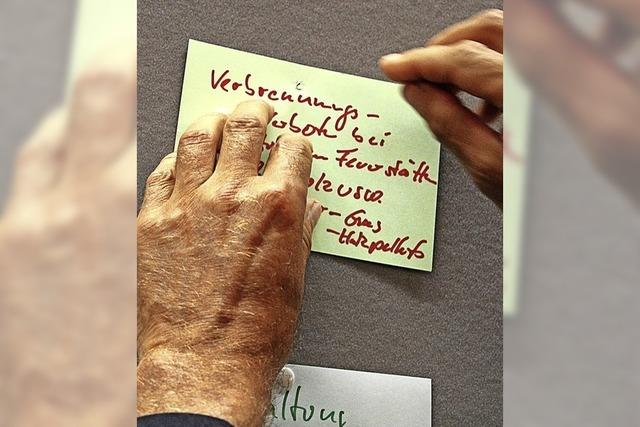 Verbrennungs-
verbote bei
Feuerstätten
Holz usw.
- Gas
- Holzpellets
altung